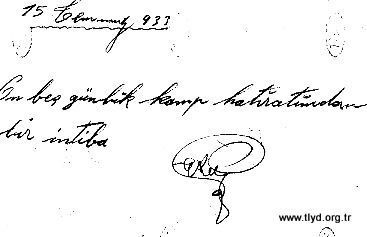 15 Temmuz 933
On beş günlük kamp hatıratından
bir intiba
www.tlyd.org.tr